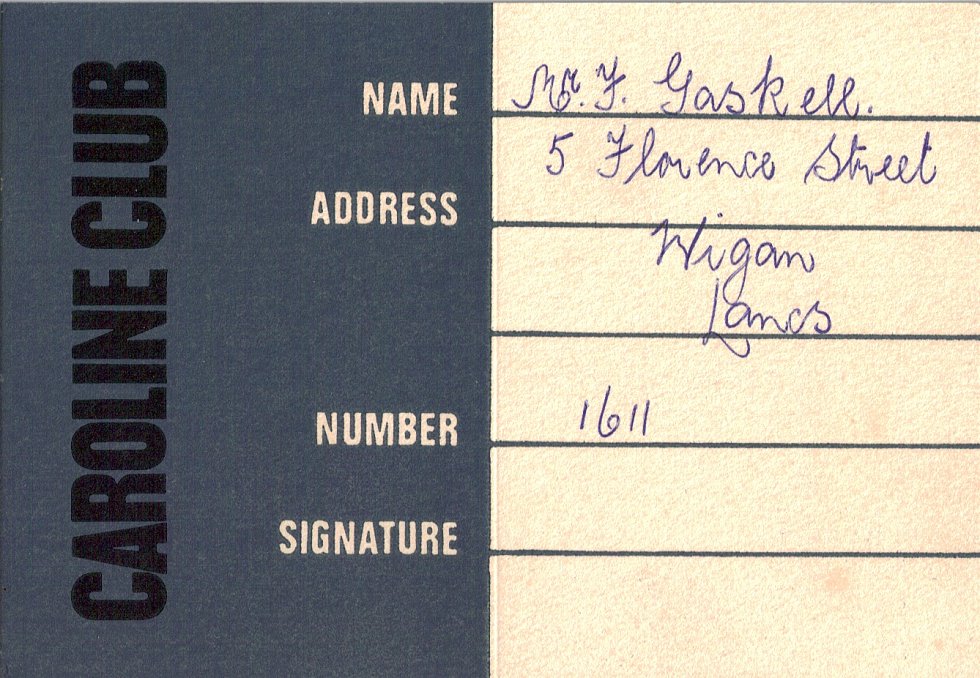 CAROLINE CLUB
NAME Mr. F. Gaskell.
5 Florence Street
ADDRESS
Wigan
Lancs
NUMBER 1611
SIGNATURE